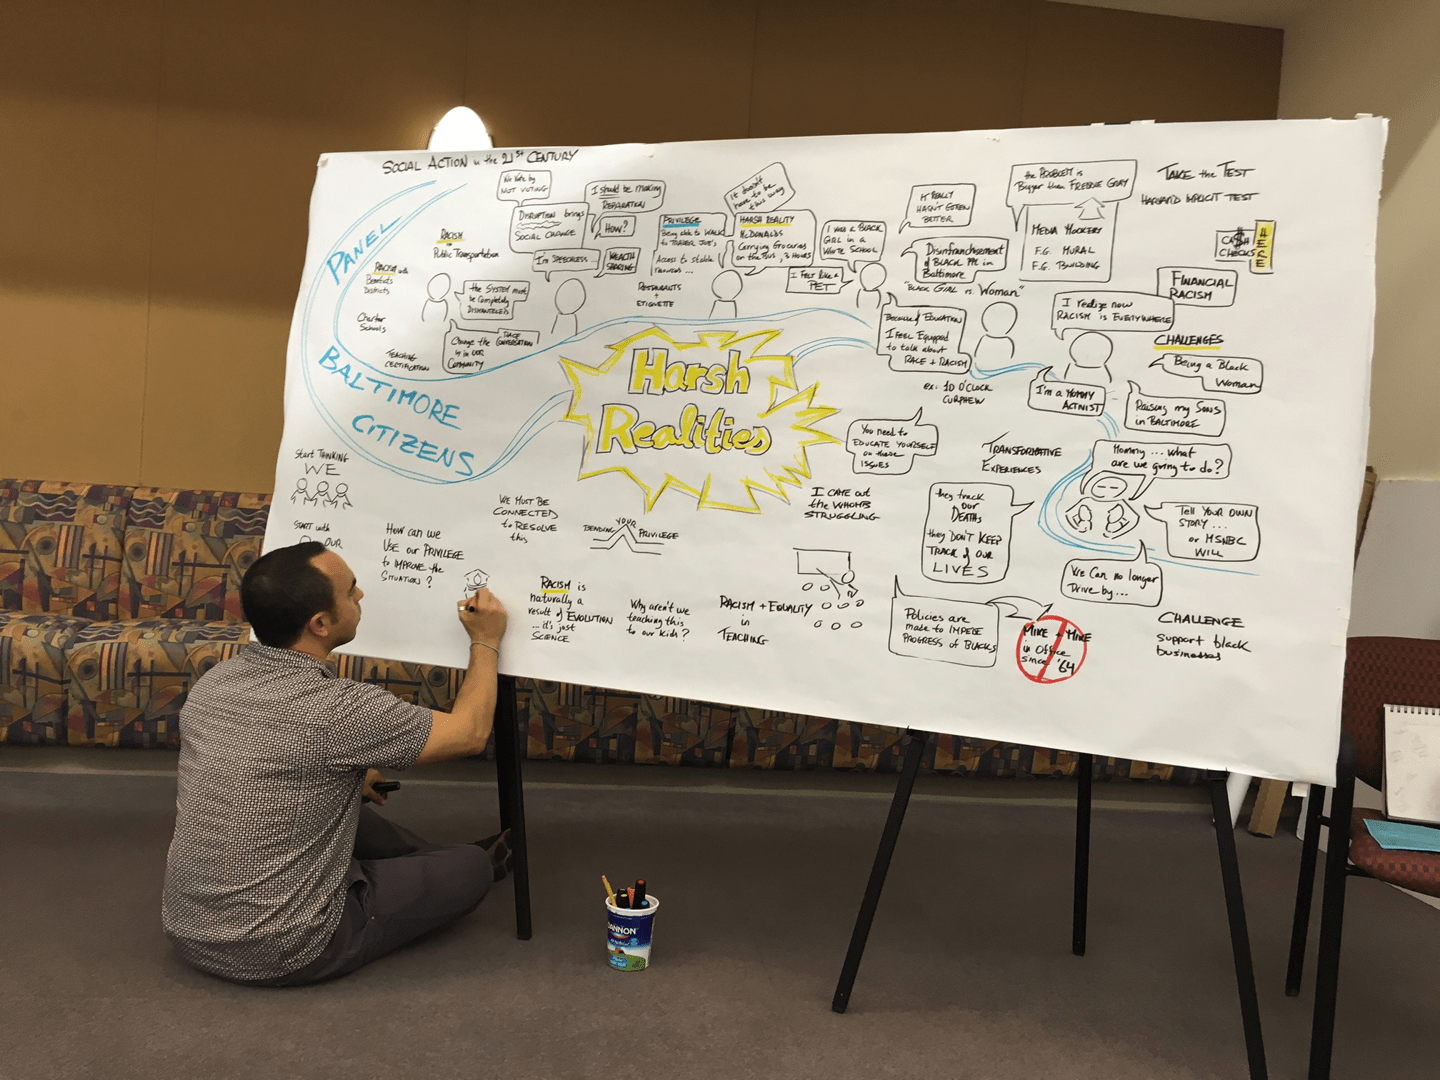 SOCIAL ACTION in the 21st CENTURY
PANEL
BALTIMORE
CITIZENS
Harsh
Realities
RACISM
Public Transportation
RACISM with
Benefits
Districts
Charter
Schools
TEACHING
CERTIFICATION
We Vote by
NOT VOTING
DISRUPTION brings
SOCIAL CHANGE
I should be making
REPARATION
HOW?
I'm SPEECHLESS...
WEALTH
SHARING
the SYSTEM must
be Completely
DISMANTELED
Change the RACE CONVERSATION
is in OUR
COMMUNITY
PRIVILEGE
Being able to WALK
to TRADER JOE'S
Access to stable
revenues ...
RESTAURANTS
+
ETIQUETTE
It doesn't
have to be
this way
HARSH REALITY
McDONALDS
Carrying Groceries
on the Bus, 3 HOURS
I WAS A BLACK
GIRL IN A
WHITE SCHOOL
I FELT LIKE A
PET
It REALLY
HASN'T GOTTEN
BETTER
Disinfranchisement
of BLACK PPL in
Baltimore
"BLACK GIRL vs. Woman"
Because of EDUCATION
I FEEL Equipped
to talk about
RACE + RACISM
ex: 10 O'CLOCK
CURPHEW
the PROBLEM is
Bigger than FREDDIE GRAY
MEDIA MOCKERY
F.G. MURAL
F.G. BUILDING
I realize now
RACISM is EVERYWHERE
I'm a MOMMY
ACTIVIST
TAKE the TEST
HARVARD IMPLICIT TEST
CA$H
CHECKS
HERE
FINANCIAL
RACISM
CHALLENGES
Being a Black
Woman
RAISING my SONS
in BALTIMORE
Mommy ... What
are we going to do?
TELL YOUR OWN
STORY ...
or MSNBC
WILL
We Can no longer
Drive by ...
You need to
EDUCATE YOURSELF
on these
ISSUES
TRANSFORMATIVE
EXPERIENCES
I CAME out
the WHOMB
STRUGGLING
they track
our
DEATHS
they DON'T KEEP
TRACK of OUR
LIVES
Policies are
made to IMPEDE
PROGRESS of BLACKS
MIKE + MIKE
in Office
since '64
CHALLENGE
support black
businesses
Start THINKING
WE
START with
OUR
How can we
USE our PRIVILEGE
to IMPROVE the
SITUATION?
WE MUST BE
CONNECTED
to RESOLVE
this
BENDING YOUR PRIVILEGE
RACISM is
naturally a
result of EVOLUTION
... it's just
SCIENCE
Why aren't we
teaching this
to our kids?
RACISM + EQUALITY
in
TEACHING
DANNON